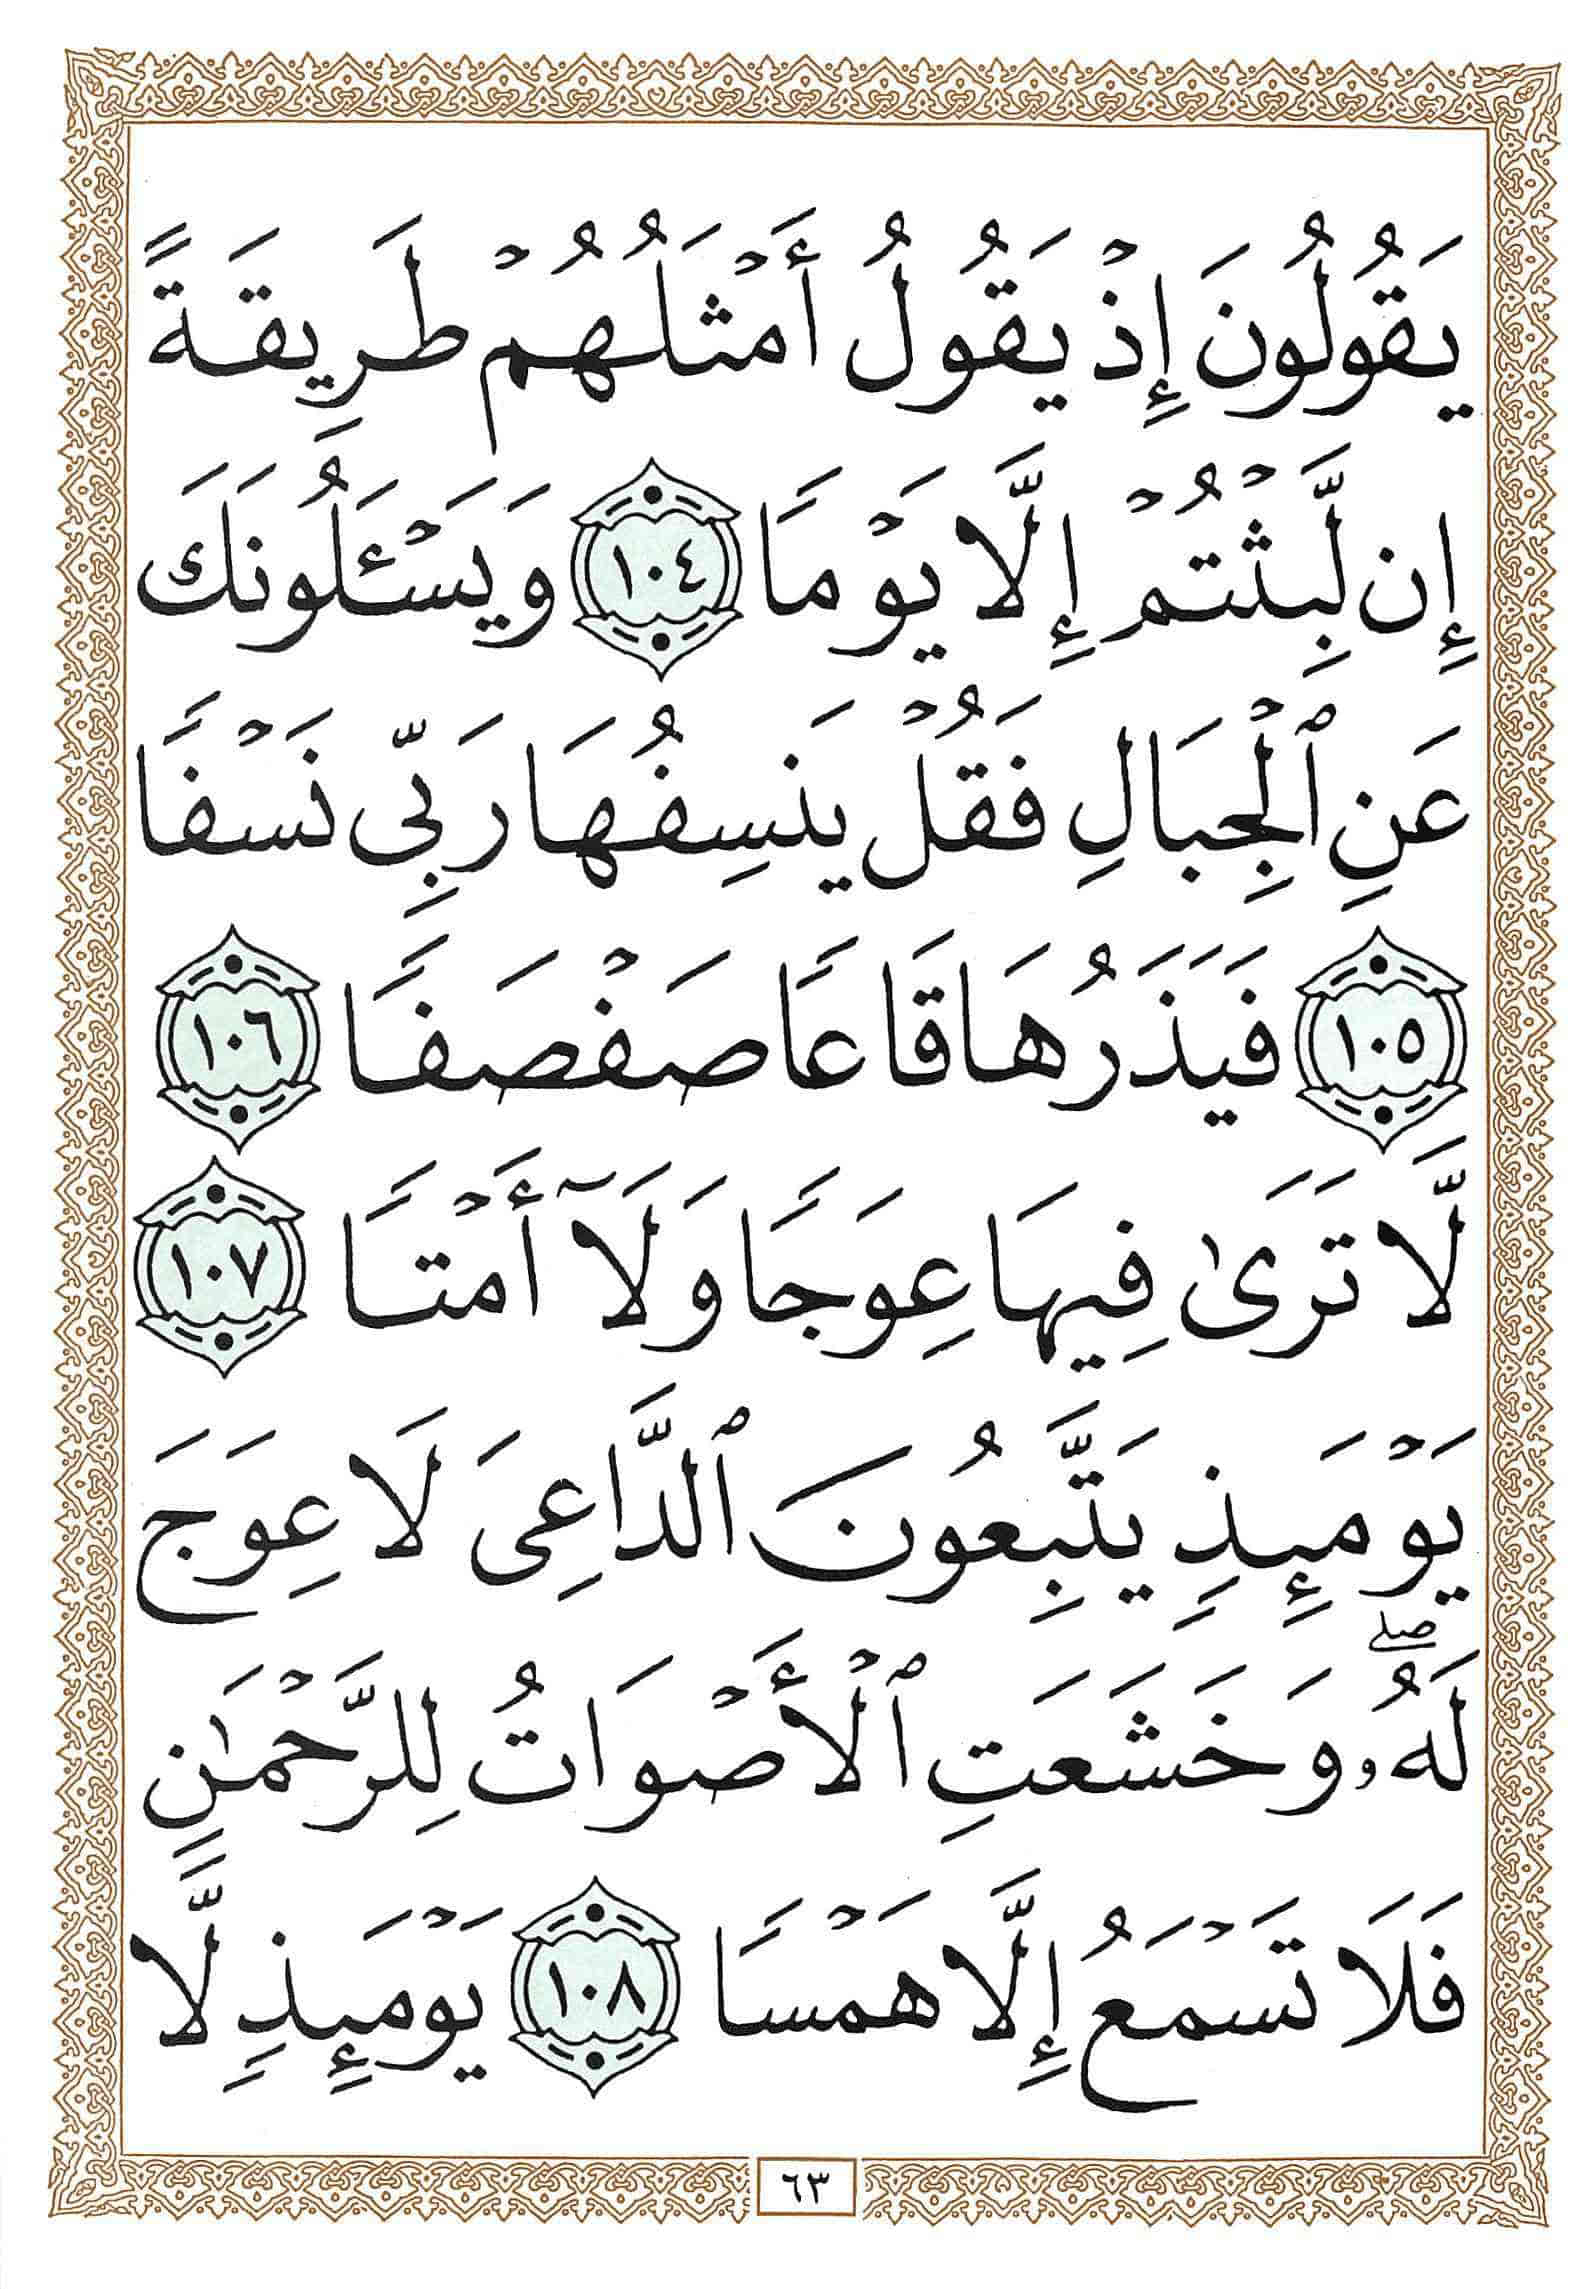 يَقُولُونَ إِذْ يَقُولُ أَمْثَلُهُمْ طَرِيقَةً
إِن لَّبِثْتُمْ إِلَّا يَوْمًا ١٠٤ وَيَسْـَٔلُونَكَ
عَنِ ٱلْجِبَالِ فَقُلْ يَنسِفُهَا رَبِّى نَسْفًا
١٠٥ فَيَذَرُهَا قَاعًا صَفْصَفًا ١٠٦
لَّا تَرَىٰ فِيهَا عِوَجًا وَلَآ أَمْتًا ١٠٧
يَوْمَئِذٍ يَتَّبِعُونَ ٱلدَّاعِىَ لَا عِوَجَ
لَهُۥ ۖ وَخَشَعَتِ ٱلْأَصْوَاتُ لِلرَّحْمَٰنِ
فَلَا تَسْمَعُ إِلَّا هَمْسًا ١٠٨ يَوْمَئِذٍ لَّا
٦٣